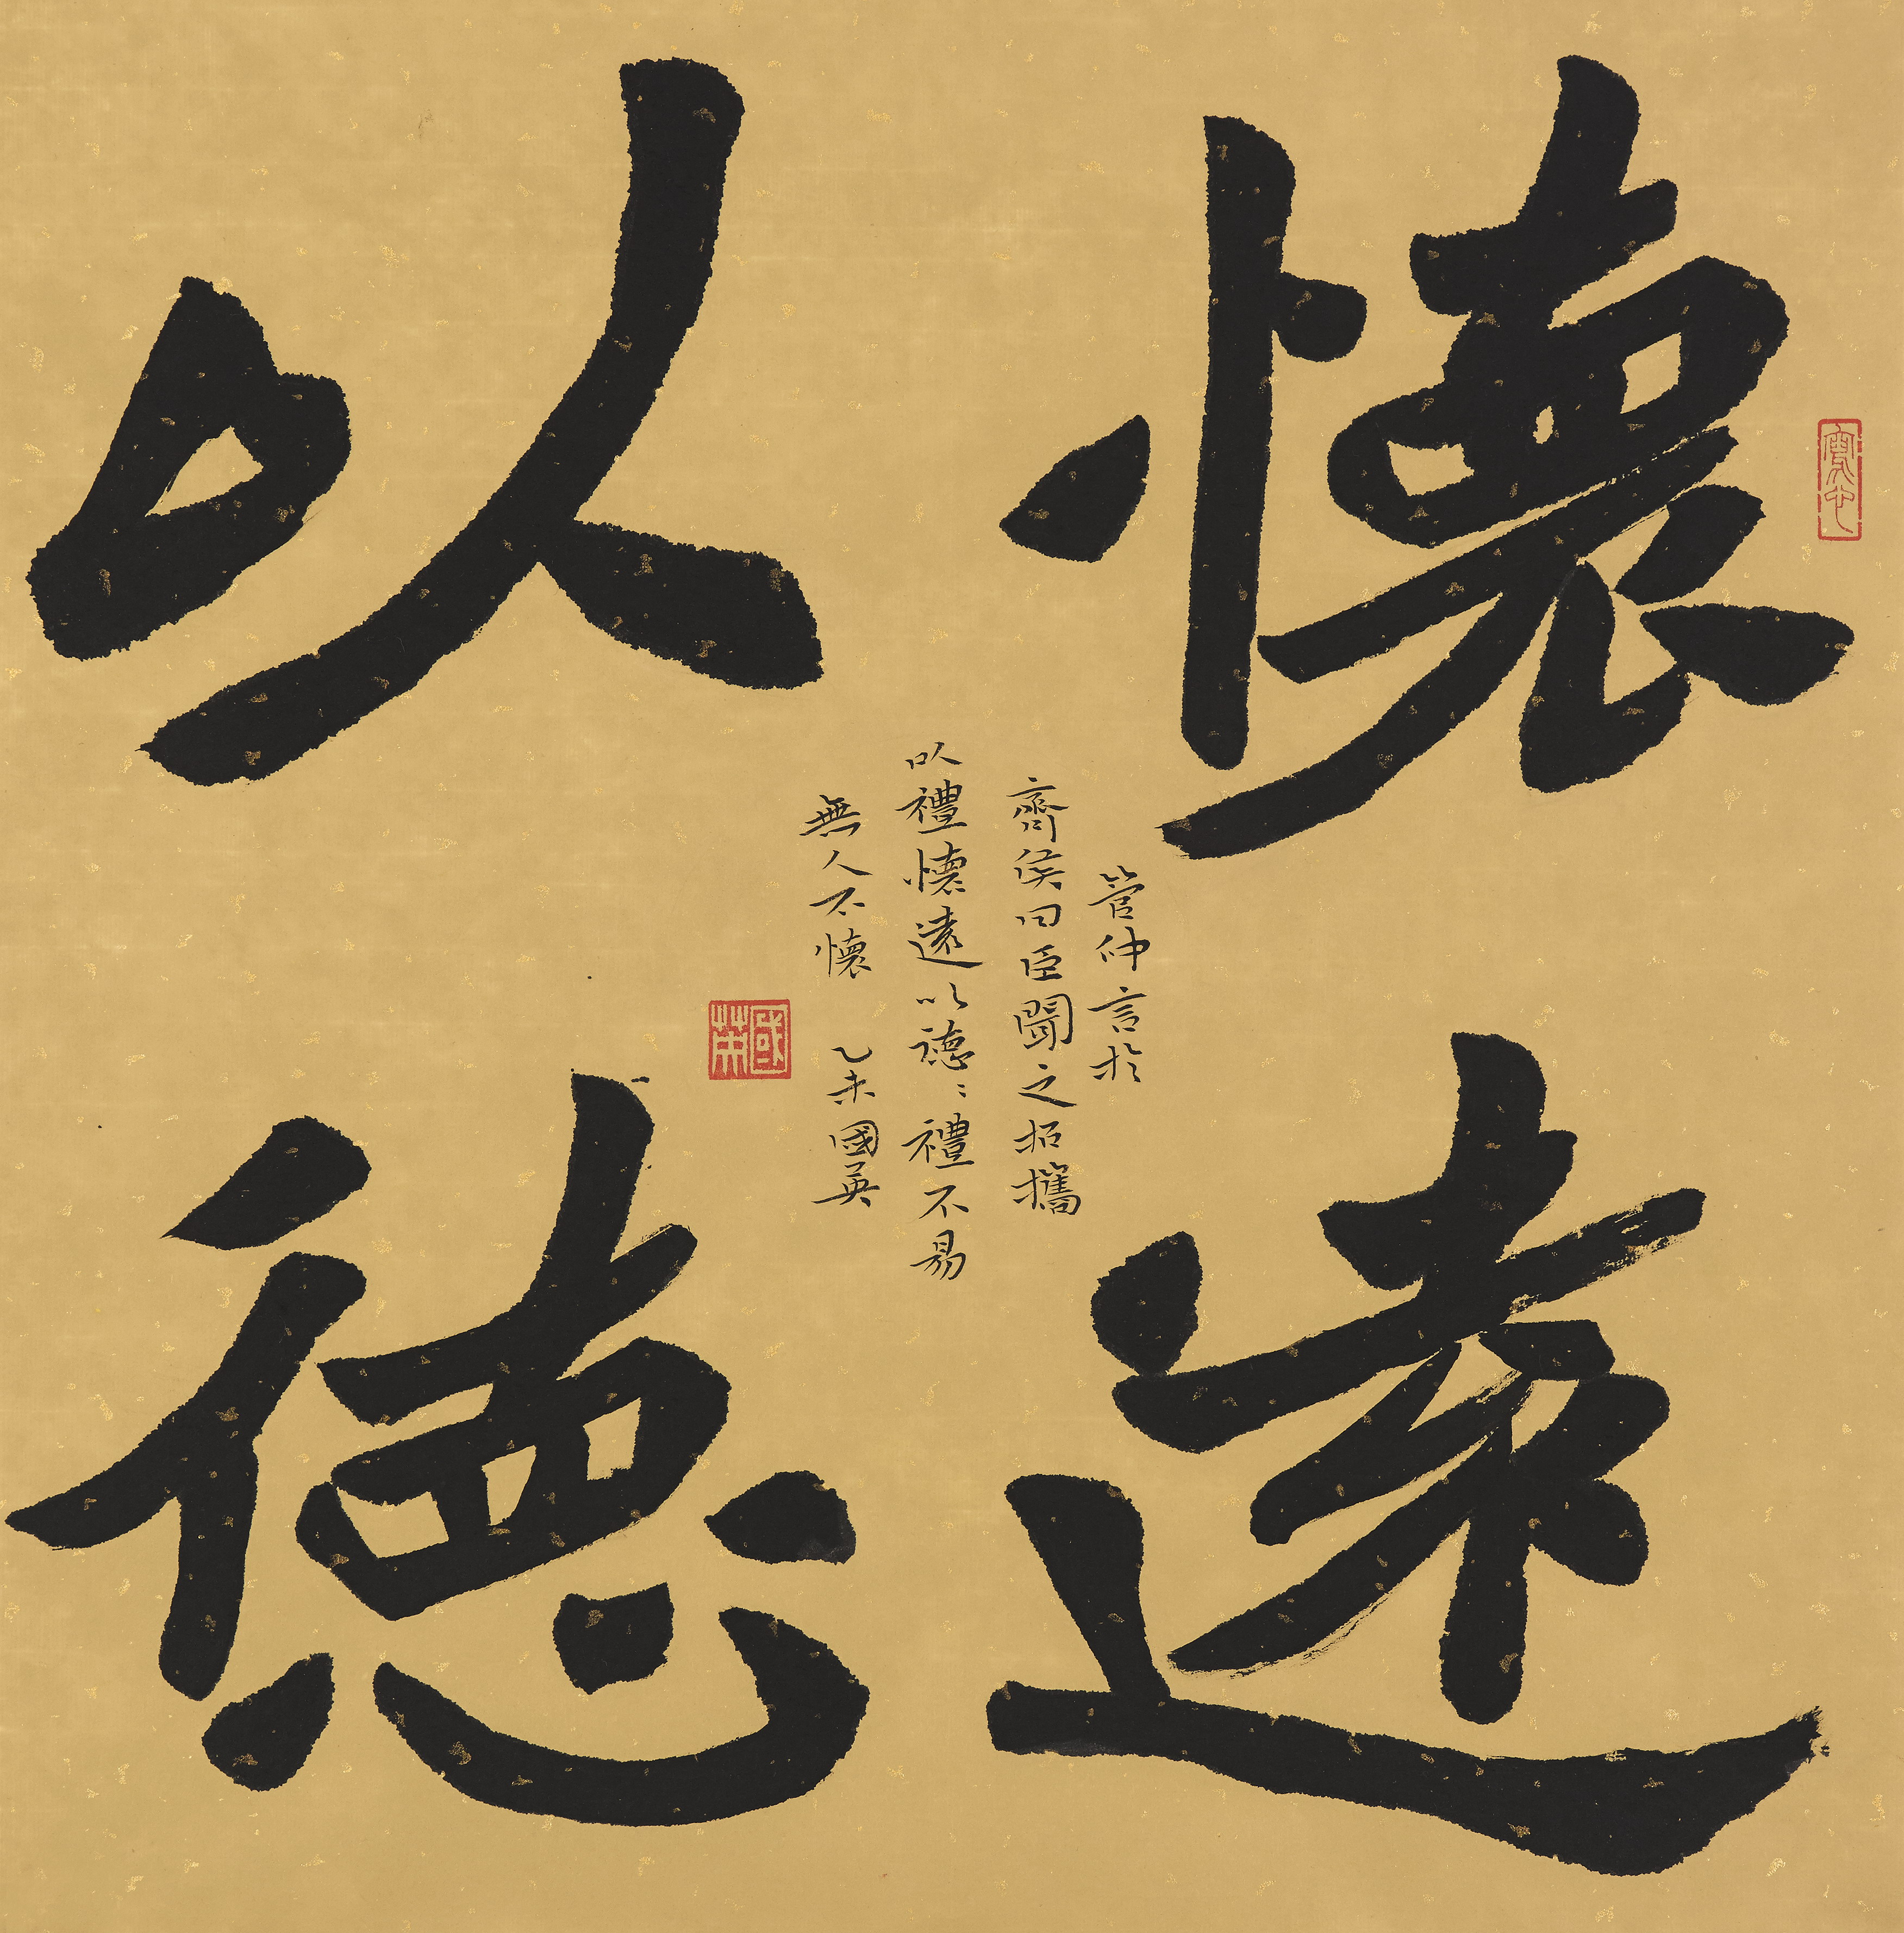 懷遠
以德
管仲言於
齊侯曰臣聞之招攜
以禮懷遠以德〻禮不易
無人不懷 乙未國英
國英